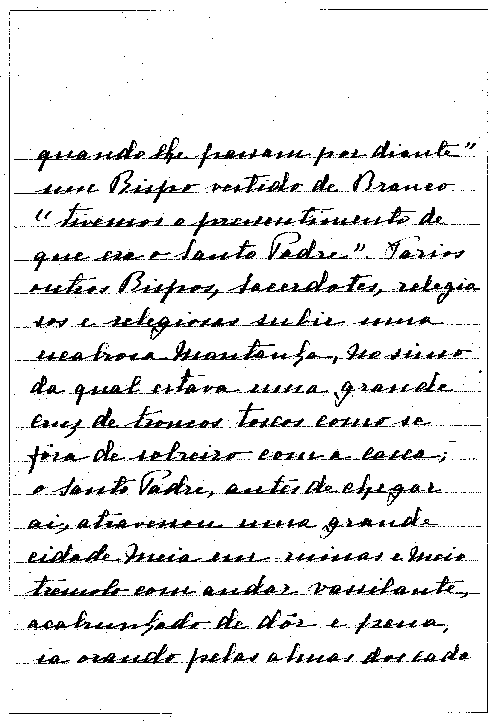 quando lhe passam por diante"
um Bispo vestido de Branco
"tivemos o pressentimento de
que era o Santo Padre". Varios
outros Bispos, Sacerdotes, religio
sos e religiosas subir uma
escabrosa montanha, no simo
da qual estava uma grande
Cruz de troncos toscos como se
fôra de sobreiro com a casca;
o Santo Padre, antes de chegar
aí, atravessou uma grande
cidade meia em ruinas e meio
tremulo com andar vassilante,
acabrunhado de dôr e pena,
ia orando pelas almas dos cada